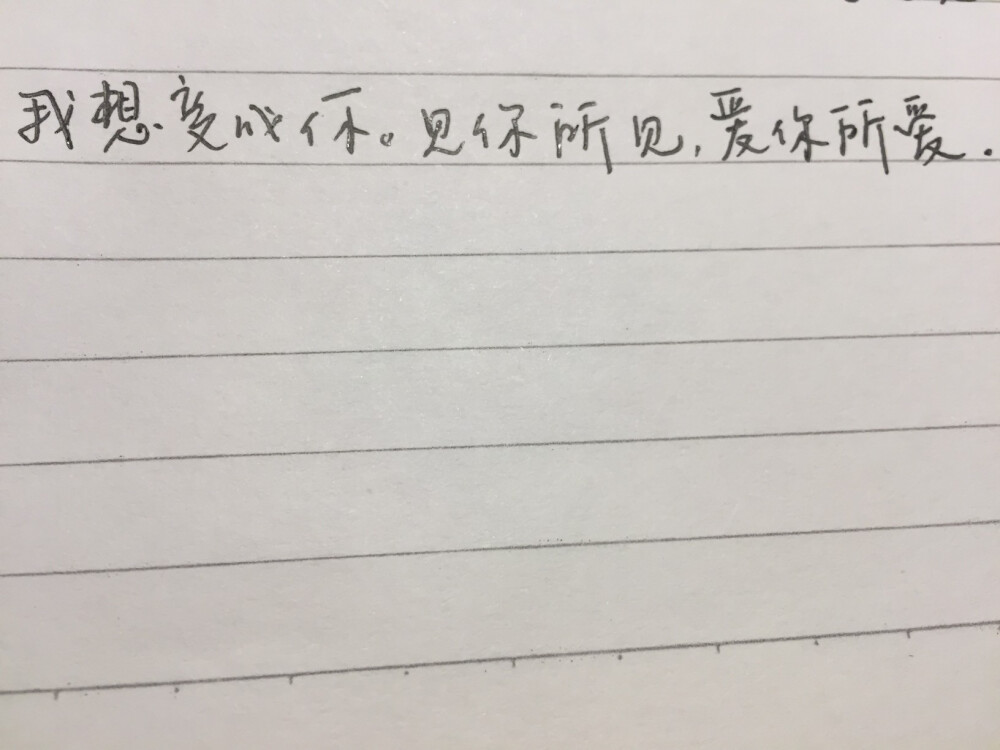 我想变成你。见你所见,爱你所爱.